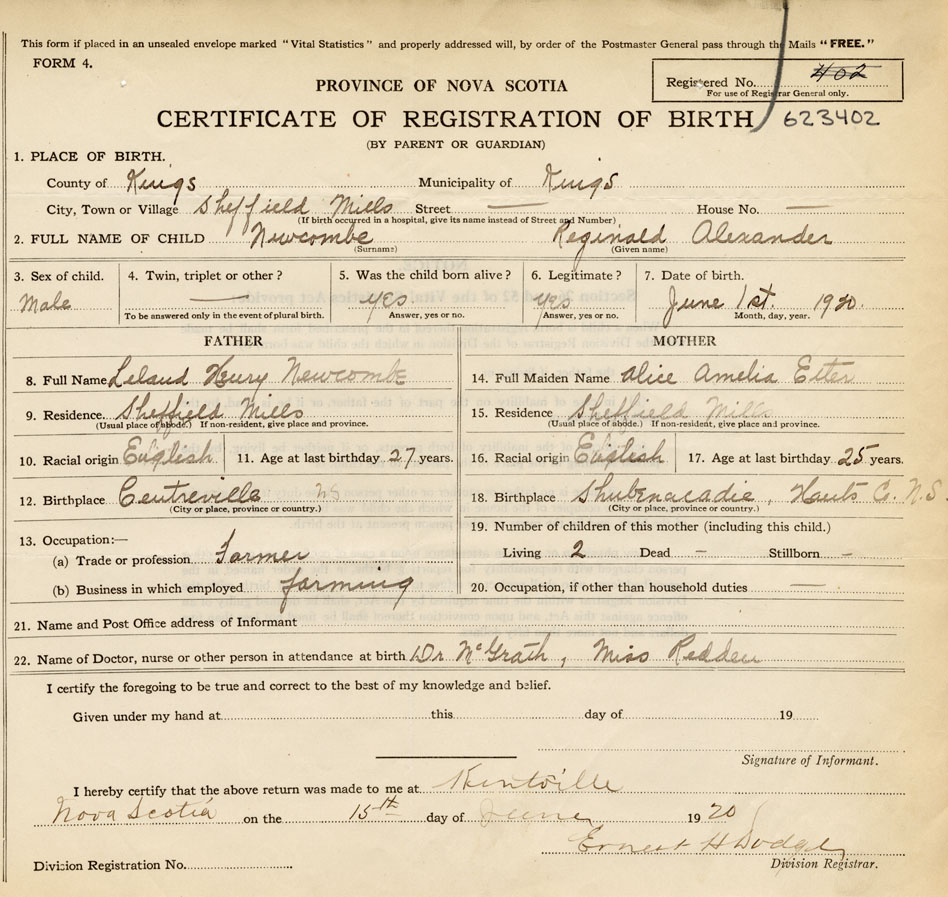 This form if placed in an unsealed envelope marked "Vital Statistics" and properly addressed will, by order of the Postmaster General pass through the Mails "FREE."
FORM 4.
PROVINCE OF NOVA SCOTIA
Registered No. 402
For use of Registrar General only.
CERTIFICATE OF REGISTRATION OF BIRTH 623402
(BY PARENT OR GUARDIAN)
1. PLACE OF BIRTH.
County of Kings Municipality of Kings
City, Town or Village Sheffield Mills Street — House No. —
(If birth occurred in a hospital, give its name instead of Street and Number)
2. FULL NAME OF CHILD Newcombe Reginald Alexander
(Surname) (Given name)
3. Sex of child. 4. Twin, triplet or other? 5. Was the child born alive? 6. Legitimate? 7. Date of birth.
Male — yes yes June 1st. 1920.
To be answered only in the event of plural birth. Answer, yes or no. Answer, yes or no. Month, day, year.
FATHER MOTHER
8. Full Name Leland Henry Newcombe 14. Full Maiden Name Alice Amelia Etter
9. Residence. Sheffield Mills 15. Residence Sheffield Mills
(Usual place of abode.) If non-resident, give place and province. (Usual place of abode.) If non-resident, give place and province.
10. Racial origin English 11. Age at last birthday 27 years. 16. Racial origin English 17. Age at last birthday 25 years.
12. Birthplace Centreville NS 18. Birthplace Shubenacadie, Hants Co. N.S.
(City or place, province or country.) (City or place, province or country.)
19. Number of children of this mother (including this child.)
13. Occupation:—
(a) Trade or profession Farmer Living 2 Dead — Stillborn —
(b) Business in which employed farming 20. Occupation, if other than household duties —
21. Name and Post Office address of Informant
22. Name of Doctor, nurse or other person in attendance at birth Dr. McGrath, Miss Redden
I certify the foregoing to be true and correct to the best of my knowledge and belief.
Given under my hand at this day of 19
Signature of Informant.
I hereby certify that the above return was made to me at Kentville
Nova Scotia on the 15th day of June 1920
Ernest H Dodge
Division Registration No. Division Registrar.